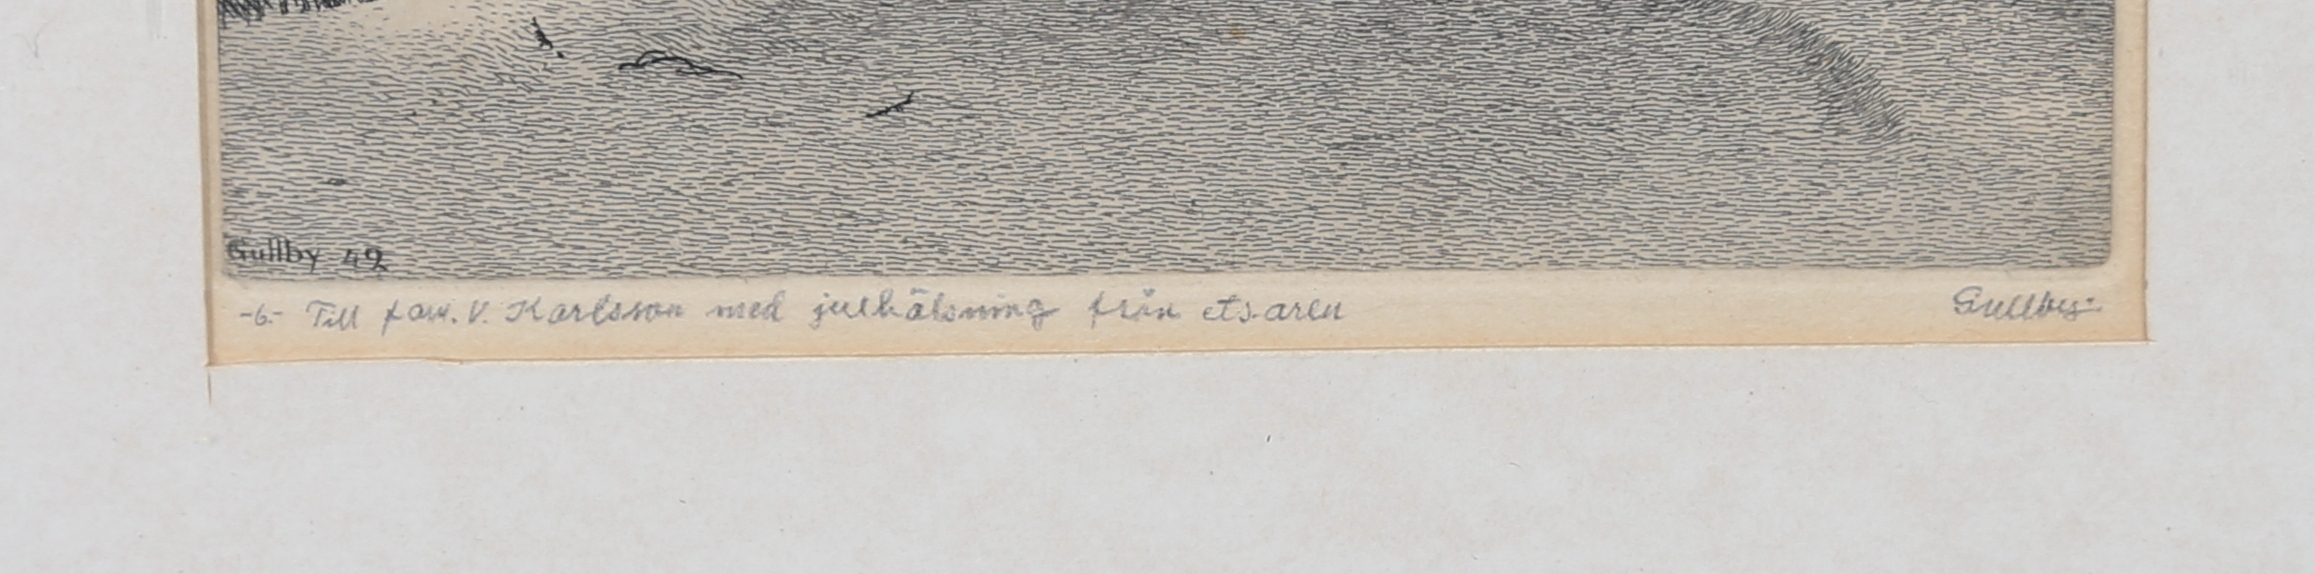 Gullby 49
-6- Till fam. V. Karlsson med julhälsning från etsaren
Gullby